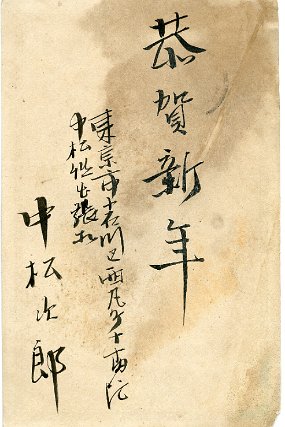 恭賀新年
東京市小石川区西丸町十番地
中松
中松次郎